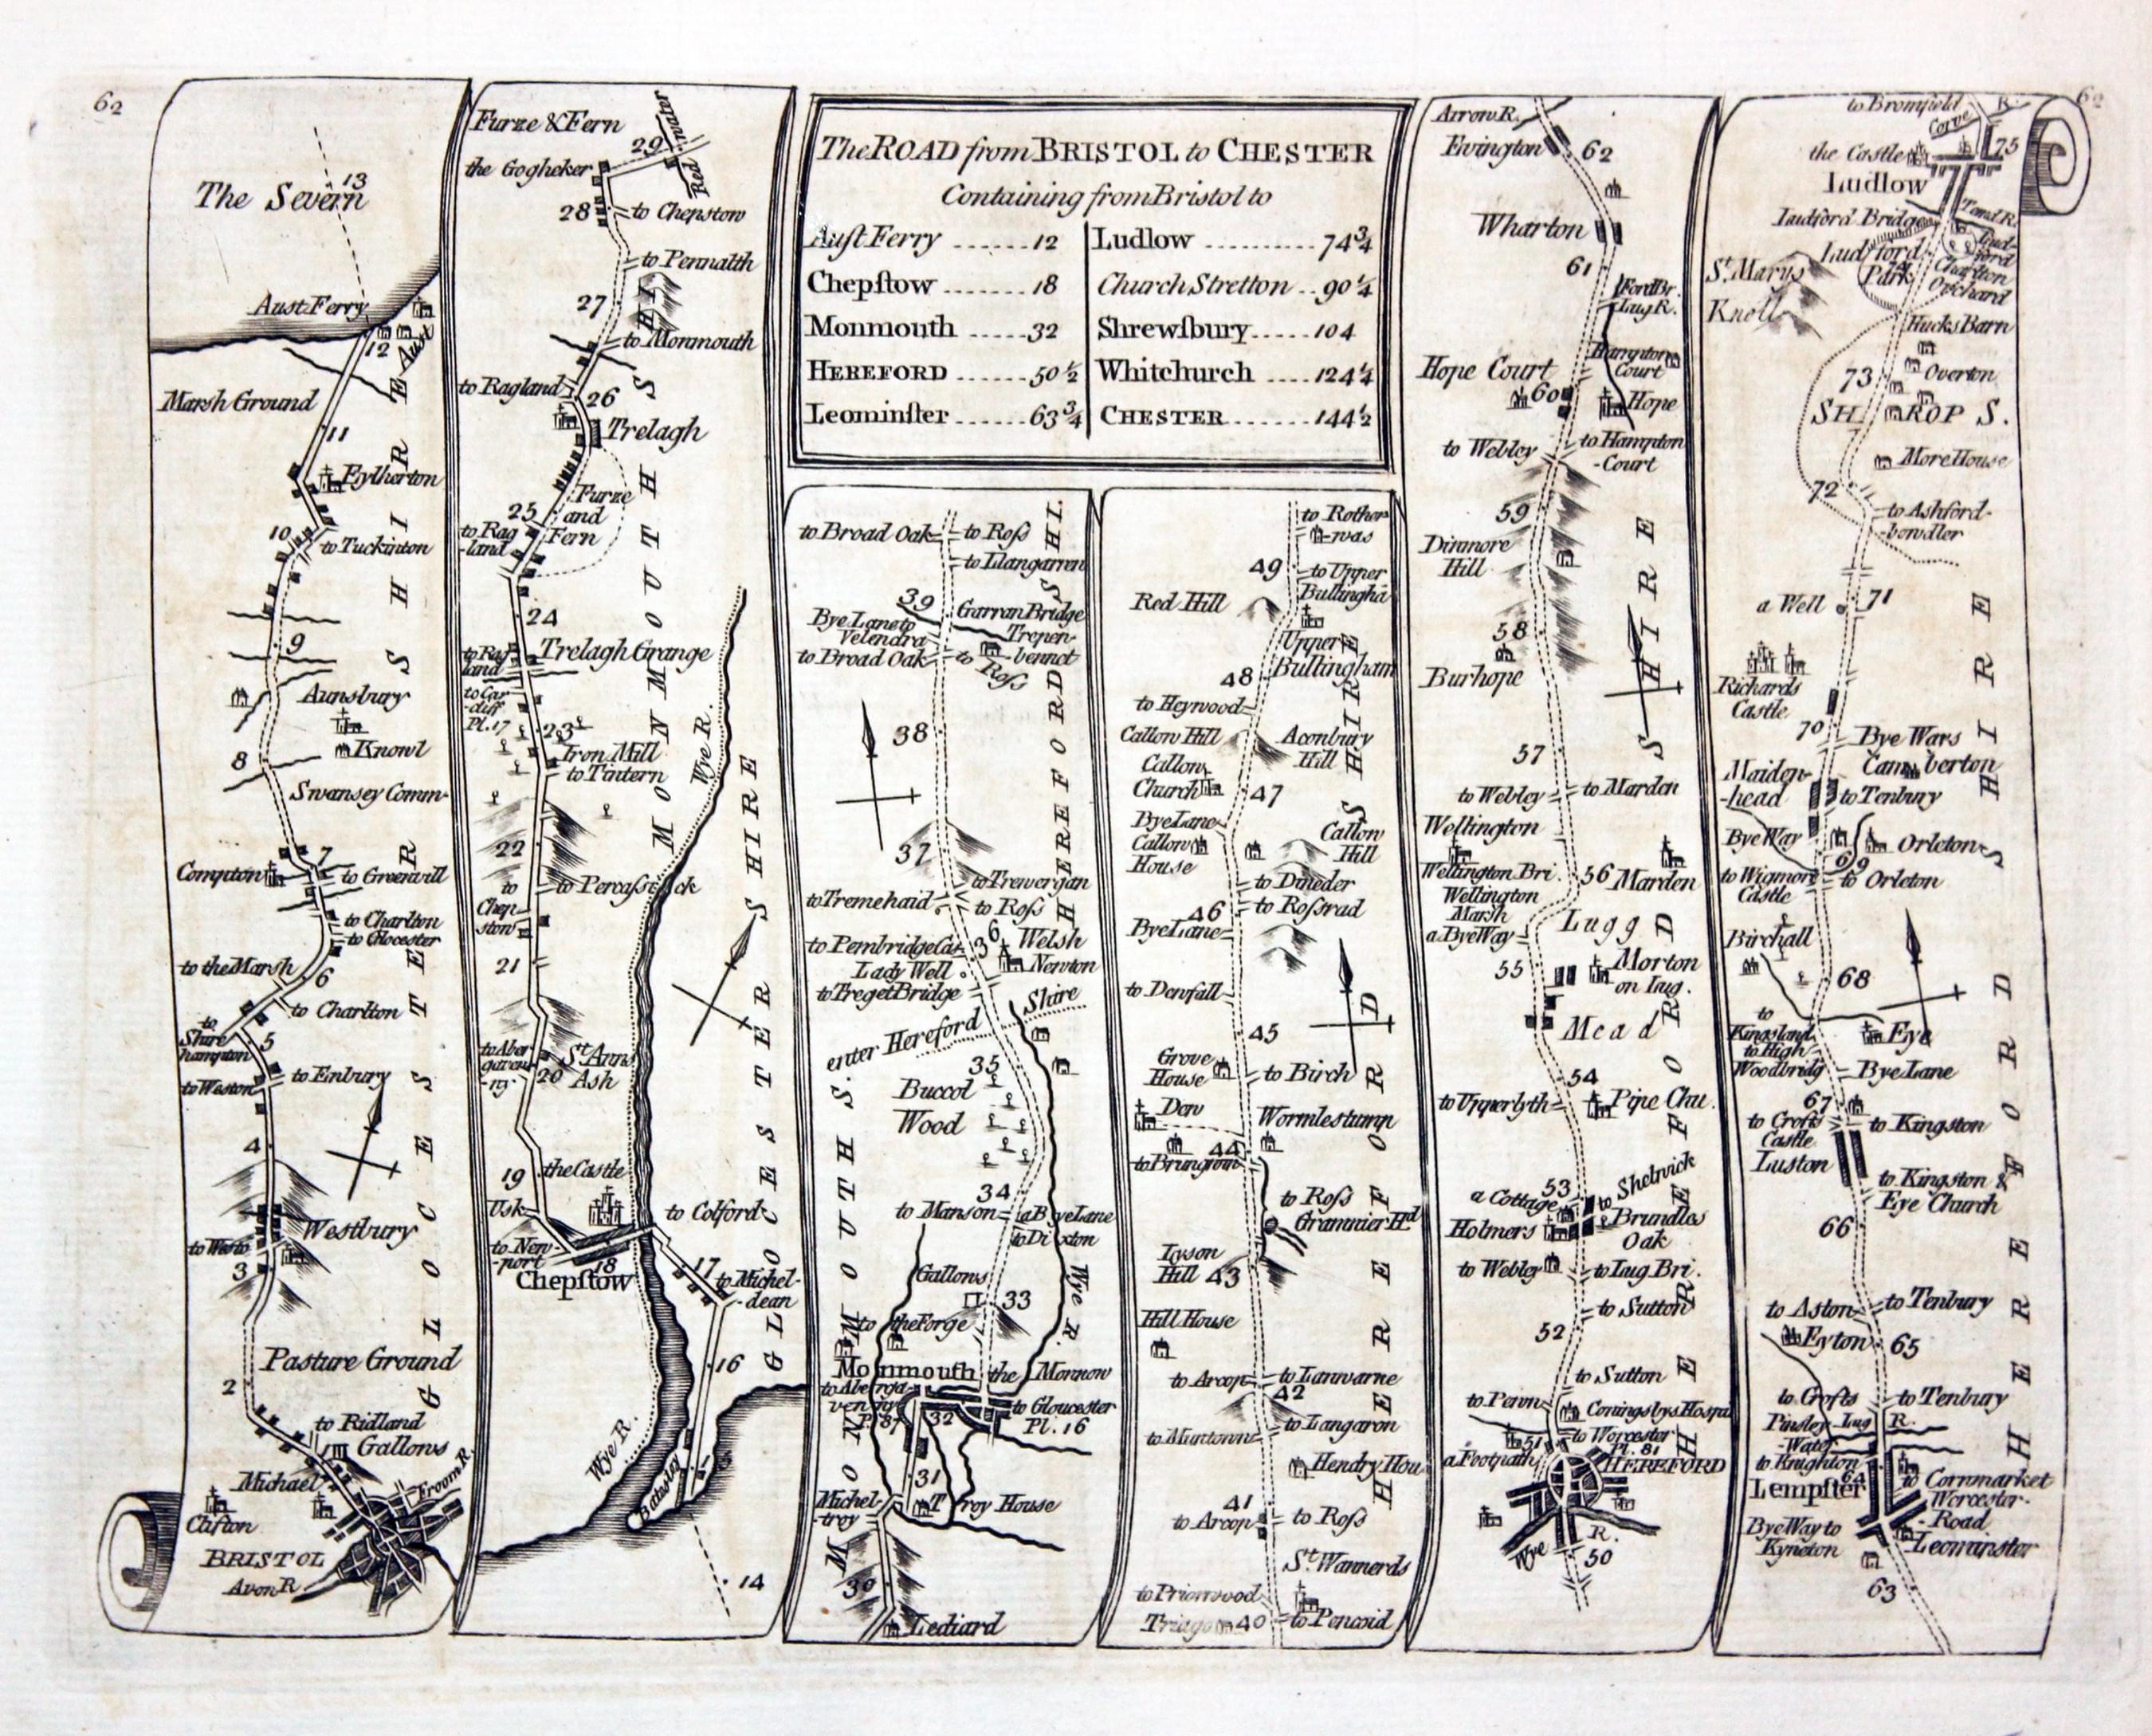 62
62
The ROAD from BRISTOL to CHESTER
Containing from Bristol to
Aust Ferry ...... 12
Chepstow ....... 18
Monmouth ..... 32
HEREFORD ...... 50½
Leominster ...... 63¾
Ludlow .......... 74¾
Church Stretton .. 90¼
Shrewsbury ..... 104
Whitchurch .... 124¼
CHESTER ....... 144½
The Severn
13
Aust Ferry
12
Aust
Marsh Ground
11
Eylherton
10
to Tuckinton
9
Aunsbury
Knowl
8
Swansey Comm-
7
Compton
to Greenvill
to Charlton
to Glocester
to the Marsh
6
to Charlton
to
Shire
hampton
5
to Enbury
to Weston
4
Westbury
to Westo
3
Pasture Ground
2
to Ridland
Gallows
Michael
Froom R.
Clifton
BRISTOL
Avon R
GLOCESTER SHIRE
Furze & Fern
29
Red water
the Gogheker
28
to Chepstow
to Pennalth
27
to Monmouth
to Ragland
26
Trelagh
Furze
and
Fern
25
to Rag
-land
24
Trelagh Grange
to Rag
land
to Car
-diff
Pl. 17
23
Iron Mill
to Tintern
22
to Percassock
to
Chep
stow
21
to Aber
gaven
-ny
20
St. Anns
Ash
19
the Castle
Usk
to New-
port
18
Chepstow
to Colford
17
to Michel-
-dean
16
15
Wye R.
Wye R.
Batesley
14
MONMOUTH SHI
GLOCESTER SHIRE
to Broad Oak
to Ross
to Llangarren
39
Garran Bridge
Bye Lane to
Velendra
Trepen-
-bennct
to Broad Oak
to Ross
38
37
to Trewergan
to Tremehaid
to Ross
36
to Pembridge Cas
Welsh
Newton
Lady Well
to Treget Bridge
enter Hereford Shire
35
Buccol
Wood
34
to Manson
a Bye Lane
to Dixton
Gallows
33
Wye R.
to the Forge
Monmouth
the Monnow
to Aberga
venny
Pl. 87
32
to Gloucester
Pl. 16
31
Michel-
troy
Troy House
30
Lediard
MONMOUTHS.
HEREFORDSHI.
to Rother
-was
49
to Upper
Bullingha
Red Hill
Upper
Bullingham
48
to Heywood
Callow Hill
Aconbury
Hill
Callow
Church
47
Bye Lane
Callow
House
Callow
Hill
to Dineder
46
to Rossrad
Bye Lane
to Dewfall
45
Grove
House
to Birch
Dew
Wormlestump
44
to Brungwin
to Ross
Grannier Hd
Lyson
Hill
43
Hill House
to Arcop
to Lanwarne
42
to Langaron
to Muntown
Hendry Hou
41
to Arcop
to Ross
St. Wannerds
to Priorswood
Triago
40
to Pencoid
HEREFORD SHIRE
Arrow R.
Evington
62
Wharton
61
Ford Br.
Lug R.
Hope Court
Hampton
Court
60
Hope
to Webley
to Hampton
-Court
59
Dinmore
Hill
58
Burhope
57
to Webley
to Marden
Wellington
Wellington Bri.
56
Marden
Wellington
Marsh
Lugg
a Bye Way
55
Morton
on Lug.
Mead
54
to Upperlyth
Pipe Chu.
53
a Cottage
to Shelwick
Holmers
Brundles
Oak
to Webley
to Lug Bri.
to Sutton
52
to Sutton
to Penn
Coningsbys Hospi
to Worcester
Pl. 81
51
a Footpath
HEREFORD
Wye R.
50
HEREFORD SHIRE
to Bromfield
Corve R.
75
the Castle
Ludlow
Ludford Bridge
Temd R.
Ludford
Park
74
Lud-
ford
Charlton
Orchard
St. Marys
Knoll
Hucks Barn
Overton
73
SHROPS.
More House
72
to Ashford-
-bowdler
71
a Well
Richards
Castle
70
Bye Wars
Camberton
Maiden-
-head
to Tenbury
Bye Way
Orleton
69
to Wigmore
Castle
to Orleton
Birchall
68
to
Kingsland
Eye
to High
Woodbridg
Bye Lane
67
to Crofts
Castle
to Kingston
Luston
to Kingston &
Eye Church
66
to Aston
to Tenbury
Eyton
65
to Crofts
to Tenbury
Pinsley
Water
Lug R.
to Knighton
64
to Cornmarket
Lempster
Worcester-
-Road
Bye Way to
Kyneton
Leominster
63
HEREFORD SHIRE